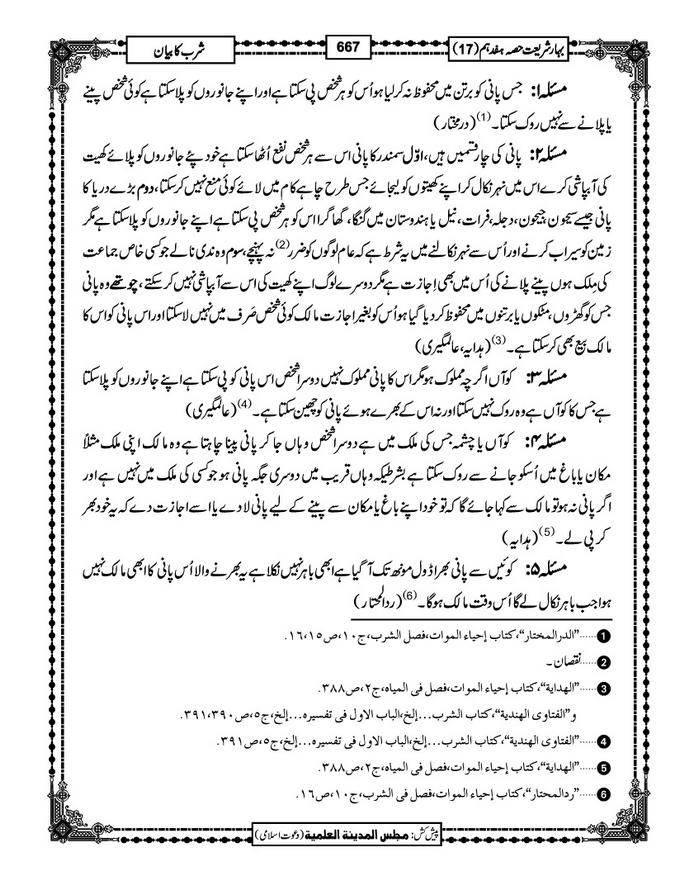 بہار شریعت حصہ ہفدہم (17)
667
شرب کا بیان
مسئلہ ۱: جس پانی کو برتن میں محفوظ نہ کرلیا ہو اُس کو ہر شخص پی سکتا ہے اور اپنے جانوروں کو پلا سکتا ہے کوئی شخص پینے
یا پلانے سے نہیں روک سکتا۔(1) (درمختار)
مسئلہ ۲: پانی کی چار قسمیں ہیں، اوّل سمندر کا پانی اس سے ہر شخص نفع اُٹھا سکتا ہے خود پئے جانوروں کو پلائے کھیت
کی آبپاشی کرے اس میں نہر نکال کر اپنے کھیتوں کو لیجائے جس طرح چاہے کام میں لائے کوئی منع نہیں کرسکتا، دوم بڑے دریا کا
پانی جیسے سیحون، جیحون، دجلہ، فرات، نیل یا ہندوستان میں گنگا، گھاگرا اس کو ہر شخص پی سکتا ہے اپنے جانوروں کو پلا سکتا ہے مگر
زمین کو سیراب کرنے اور اُس سے نہر نکالنے میں یہ شرط ہے کہ عام لوگوں کو ضرر(2) نہ پہنچے، سوم وہ ندی نالے جو کسی خاص جماعت
کی مِلک ہوں پینے پلانے کی اُس میں بھی اِجازت ہے مگر دوسرے لوگ اپنے کھیت کی اس سے آبپاشی نہیں کرسکتے، چوتھے وہ پانی
جس کو گھڑوں، مٹکوں یا برتنوں میں محفوظ کردیا گیا ہو اُس کو بغیر اجازت مالک کوئی شخص صَرف میں نہیں لاسکتا اور اس پانی کو اس کا
مالک بیع بھی کرسکتا ہے۔(3) (ہدایہ، عالمگیری)
مسئلہ ۳: کوآں اگرچہ مملوک ہو مگر اس کا پانی مملوک نہیں دوسرا شخص اس پانی کو پی سکتا ہے اپنے جانوروں کو پلا سکتا
ہے جس کا کوآں ہے وہ روک نہیں سکتا اور نہ اس کے بھرے ہوئے پانی کو چھین سکتا ہے۔(4) (عالمگیری)
مسئلہ ۴: کوآں یا چشمہ جس کی مِلک میں ہے دوسرا شخص وہاں جا کر پانی پینا چاہتا ہے وہ مالک اپنی ملک مثلاً
مکان یا باغ میں اُسکو جانے سے روک سکتا ہے بشرطیکہ وہاں قریب میں دوسری جگہ پانی ہو جو کسی کی ملک میں نہیں ہے اور
اگر پانی نہ ہو تو مالک سے کہا جائے گا کہ تو خود اپنے باغ یا مکان سے پینے کے لیے پانی لادے یا اسے اجازت دے کہ یہ خود بھر
کر پی لے۔(5) (ہدایہ)
مسئلہ ۵: کوئیں سے پانی بھرا ڈول مونھ تک آگیا ہے ابھی باہر نہیں نکلا ہے یہ بھرنے والا اُس پانی کا ابھی مالک نہیں
ہوا جب باہر نکال لے گا اُس وقت مالک ہوگا۔(6) (ردالمحتار)
1......"الدرالمختار"، کتاب إحیاء الموات، فصل الشرب، ج۱۰، ص۱۵، ۱۶.
2......نقصان۔
3......"الھدایة"، کتاب إحیاء الموات، فصل فی المیاه، ج۲، ص۳۸۸.
و"الفتاوی الھندیة"، کتاب الشرب...إلخ، الباب الاول فی تفسیره...إلخ، ج۵، ص۳۹۰، ۳۹۱.
4......"الفتاوی الھندیة"، کتاب الشرب...إلخ، الباب الاول فی تفسیره...إلخ، ج۵، ص۳۹۱.
5......"الھدایة"، کتاب إحیاء الموات، فصل فی المیاه، ج۲، ص۳۸۸.
6......"ردالمحتار"، کتاب إحیاء الموات، فصل فی الشرب، ج۱۰، ص۱۶.
پیش کش: مجلس المدینة العلمیة (دعوت اسلامی)